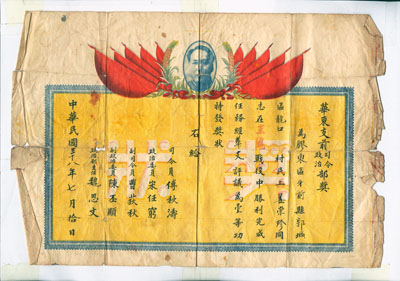 華東支前司令部獎
政治
為膠東區牙前縣郭城
區龍口村民工姜崇珍同
志在戰役中勝利完成
任務經羣眾評議為壹等功
特發獎狀
右給
司令員傅秋濤
政治委員宋任窮
副司令員曹荻秋
副政治委員陳丕顯
政治部主任魏思文
中華民國三十八年七月拾日